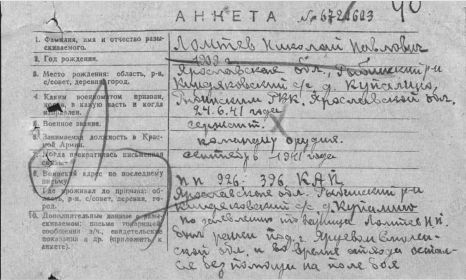 АНКЕТА № 6721603
1. Фамилия, имя и отчество разыскиваемого. Ломтев Николай Павлович
2. Год рождения.
3. Место рождения: область, р-н, с/совет, деревня, город. Ярославская обл., Рыбинский р-н
Кипряковский с/с д.
4. Каким военкоматом призван, в какую часть и когда направлен. Рыбинским ГВК, Ярославской обл.
24.6.41 года
5. Военное звание. сержант.
6. Занимаемая должность в Красной Армии. командир орудия.
7. Когда прекратилась письменная связь. сентябрь 1941 года
8. Воинский адрес по последнему письму. п/п 926. 396. КАП
9. Где проживал до призыва: обл., р-н, с/совет, деревня, город. Ярославская обл. Рыбинский р-н
с/с д.
10. Дополнительные данные о разыскиваемом: письма товарищей, сообщения в/ч, свидетельские показания и др. (приложить к анкете). по заявлению Ломтев Н.
был ранен под г. Ярцевом Смоленской
обл. и во время отхода остался
без помощи на поле боя